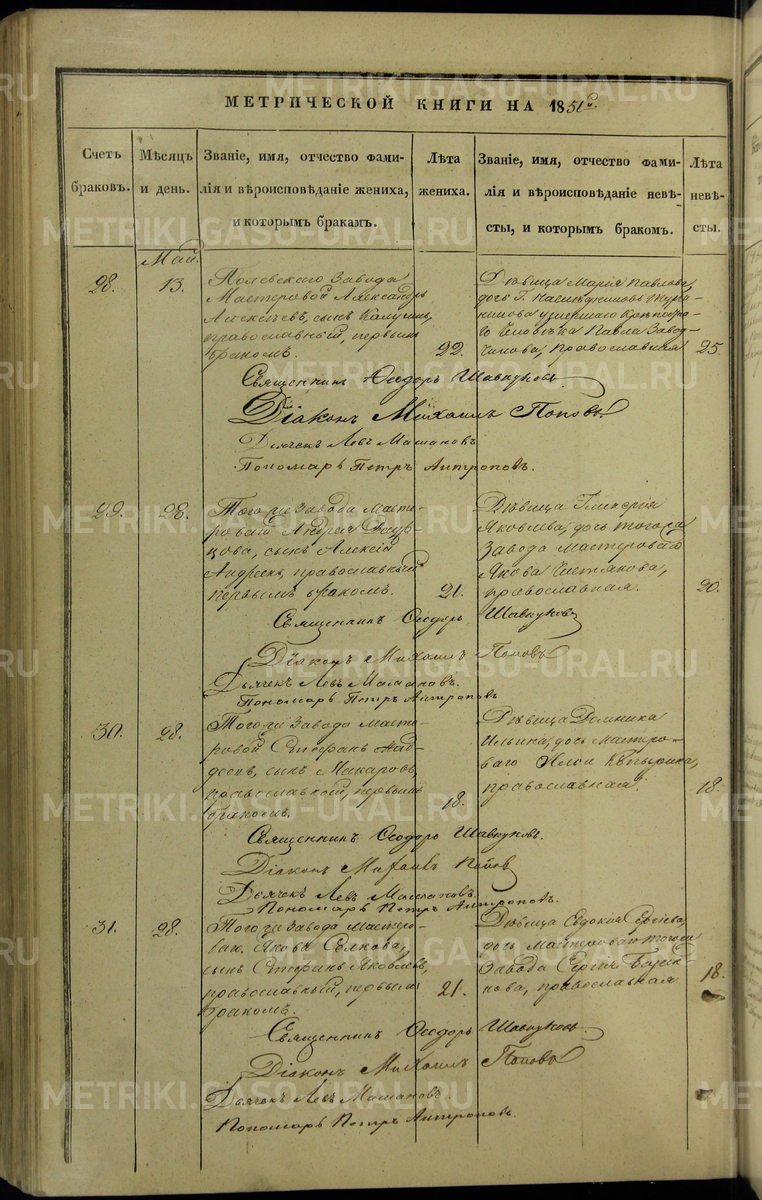 МЕТРИЧЕСКОЙ КНИГИ НА 1851й.
Счетъ браковъ.
Мѣсяцъ и день.
Званіе, имя, отчество фами-
лія и вѣроисповѣданіе жениха,
и которымъ бракамъ.
Лѣта жениха.
Званіе, имя, отчество фами-
лія и вѣроисповѣданіе невѣ-
сты, и которымъ бракомъ.
Лѣта невѣ-
сты.
Май.
28.
13.
Полевскаго Завода
Мастеровой Александръ
Алексѣевъ, сынъ
православный, первымъ
бракомъ.
22.
Дѣвица Марія Павлова
дочь Г. Наслѣдниковъ Турча-
нинова умершаго
Павла
православная
25.
Священникъ Ѳеодоръ Шавкуновъ.
Діаконъ Михаилъ Поповъ.
Дьячекъ Левъ Машановъ.
Пономарь Петръ Антроповъ.
29.
28.
Того же Завода Масте-
Андрея
сынъ Алексій
Андреевъ, православный
первымъ бракомъ.
21.
Дѣвица Гликерія
Яковлева, дочь того же
Завода Мастероваго
Якова Чистякова,
православная.
20.
Священникъ Ѳеодоръ Шавкуновъ
Діаконъ Михаилъ Поповъ
Дьячекъ Левъ Машановъ.
Пономарь Петръ Антроповъ
30.
28.
Того же Завода Масте-
ровой Стефанъ
сынъ Макаровъ,
православный, первымъ
бракомъ.
18.
Дѣвица Домника
Ильина, дочь Мастеро-
ваго Ильи
православная.
18.
Священникъ Ѳеодоръ Шавкуновъ.
Діаконъ Михаилъ Поповъ
Дьячекъ Левъ Машановъ.
Пономарь Петръ Антроповъ.
31.
28.
Того же Завода Мастеро-
Якова
сынъ Стефанъ Яковлевъ,
православный, первымъ
бракомъ.
21.
Дѣвица Евдокія Сергѣева,
дочь Мастероваго того же
Завода Сергѣя
православная
18.
Священникъ Ѳеодоръ Шавкуновъ.
Діаконъ Михаилъ Поповъ
Дьячекъ Левъ Машановъ.
Пономарь Петръ Антроповъ.
METRIKI.GASO-URAL.RU